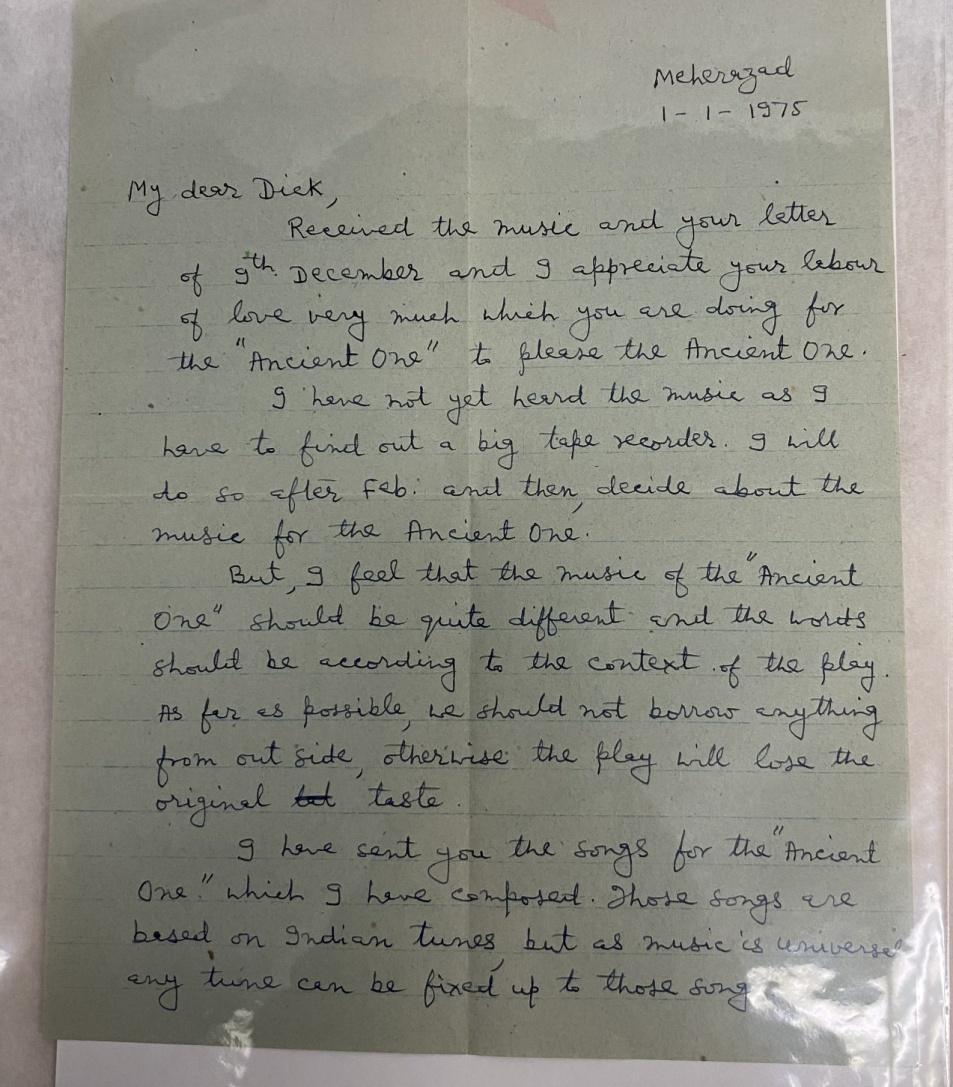 Meherazad
1-1-1975
My dear Dick,
Received the music and your letter
of 9th. December and I appreciate your labour
of love very much which you are doing for
the "Ancient One" to please the Ancient One.
I have not yet heard the music as I
have to find out a big tape recorder. I will
do so after Feb. and then, decide about the
music for the Ancient One.
But, I feel that the music of the "Ancient
One" should be quite different and the words
should be according to the context of the play.
As far as possible, we should not borrow anything
from out side, otherwise the play will lose the
original taste.
I have sent you the songs for the "Ancient
One." which I have composed. Those songs are
based on Indian tunes, but as music is universal
any tune can be fixed up to those song